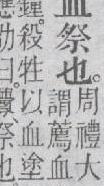 血祭也。
周禮大
謂薦血
鍾。殺牲以血塗
應劭曰。釁、祭也